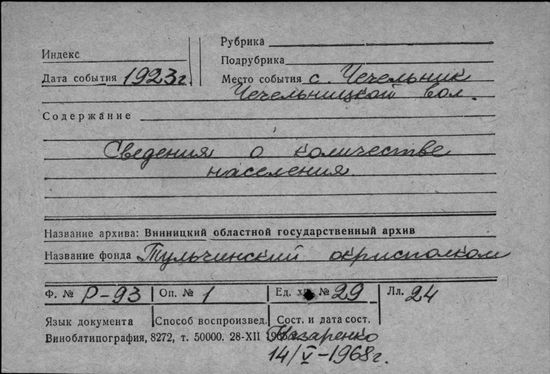 Рубрика
Индекс
Подрубрика
Дата события 1923г. Место события с. Чечельник
Чечельницкой вол.
Содержание
Сведения о количестве
населения.
Название архива: Винницкий областной государственный архив
Название фонда Тульчинский окрисполком
Ф. № Р-93 Оп. № 1 Ед. хр. № 29 Лл. 24
Язык документа Способ воспроизвед. Сост. и дата сост.
Виноблтипография, 8272, т. 50000. 28-XII
Назаренко
14/V-1968г.